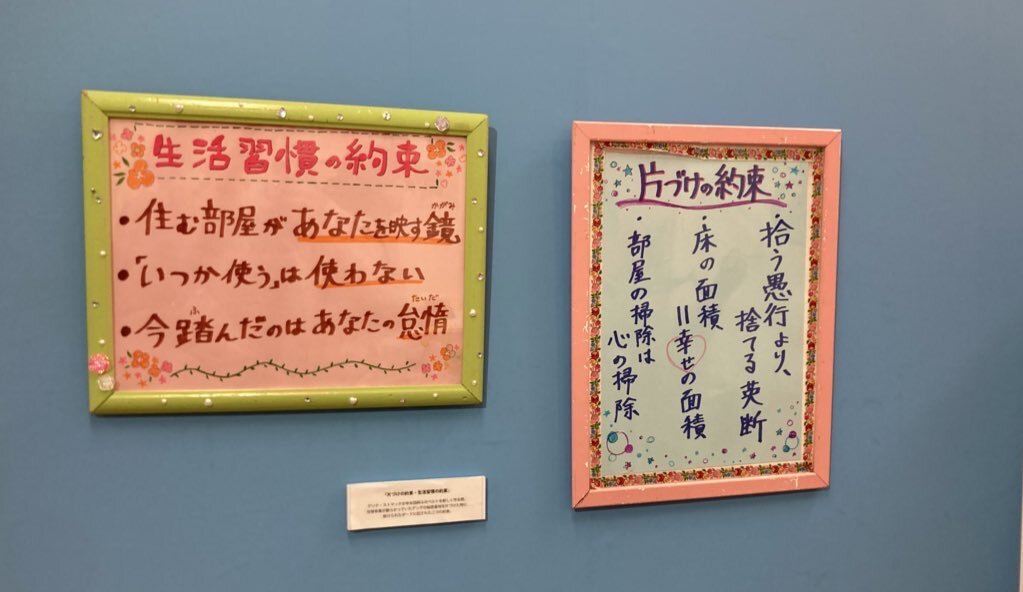 生活習慣の約束
・住む部屋があなたを映す鏡
かがみ
・「いつか使う」は使わない
・今踏んだのはあなたの怠惰
ふ
たいだ
片づけの約束
・拾う愚行より、
捨てる英断
・床の面積
＝幸せの面積
・部屋の掃除は
心の掃除
「片づけの約束・生活習慣の約束」